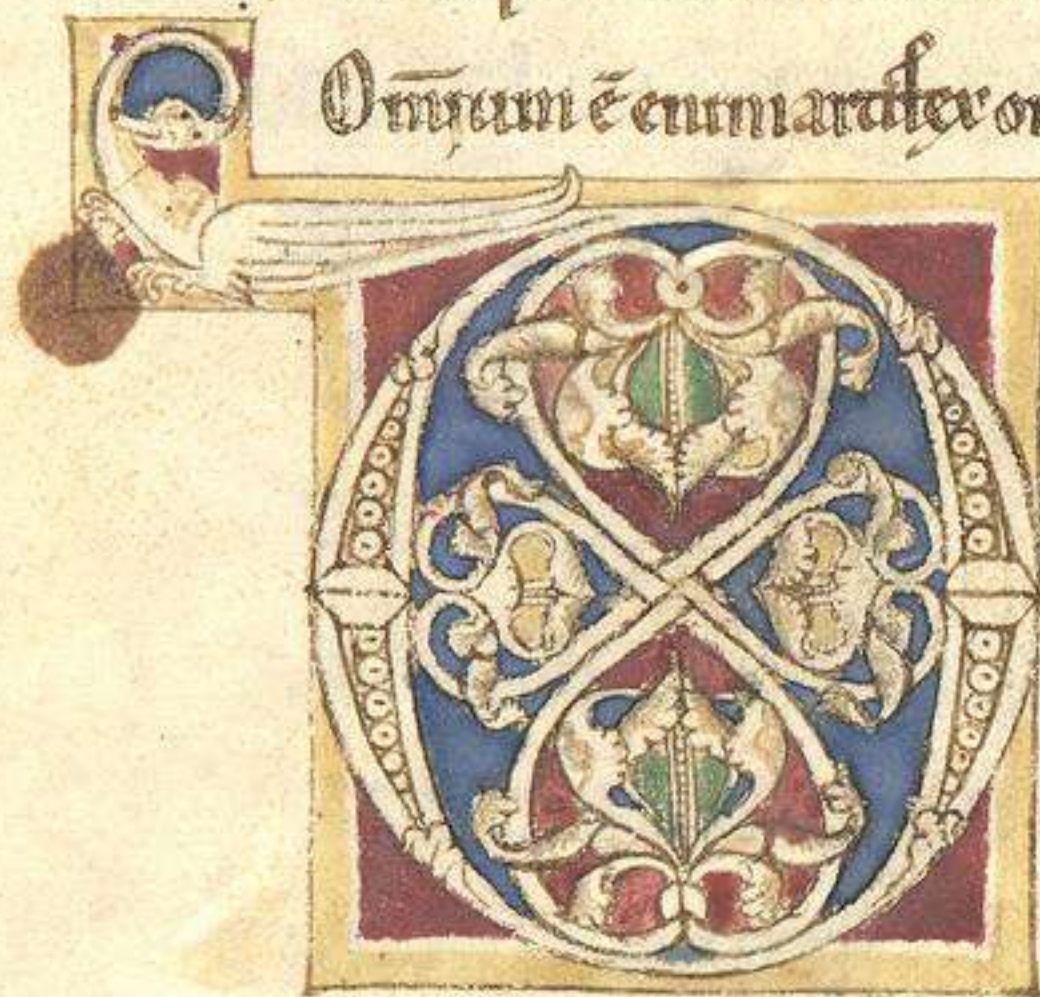 Om̄ium ē enim artifex